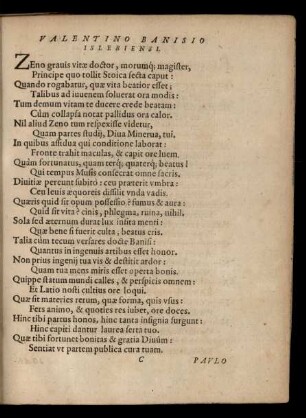 VALENTINO BANISIO
ISLEBIENSI.
ZEno grauis vitæ doctor, morumq́; magister,
Principe quo tollit Stoica secta caput:
Quando rogabatur, quæ vita beatior esset;
Talibus ad iuuenem soluerat ora modis:
Tum demum vitam te ducere crede beatam:
Cùm collapsa notat pallidus ora calor.
Nil aliud Zeno tum respexisse videtur,
Quam partes studij, Diua Minerua, tui.
In quibus assidua qui conditione laborat:
Fronte trahit maculas, & capit ore luem.
Quàm fortunatus, quam terq́; quaterq́; beatus!
Qui tempus Musis consecrat omne sacris.
Diuitiæ pereunt subitò: ceu præterit vmbra:
Ceu leuis æquoreis dissilit vnda vadis.
Quæris quid sit opum possessio? fumus & aura:
Quid sit vita? cinis, phlegma, ruina, nihil.
Sola sed æternum durat lux insita menti:
Quæ bene si fuerit culta; beatus eris.
Talia cùm tecum versares docte Banisi:
Quantus in ingenuis artibus esset honor.
Non prius ingenij tua vis & destitit ardor:
Quam tua mens miris esset operta bonis.
Quippe statum mundi calles, & perspicis omnem:
Ex Latio nosti cultius ore loqui.
Quæ sit materies rerum, quæ forma, quis vsus:
Fers animo, & quoties res iubet, ore doces.
Hinc tibi partus honos, hinc tanta insignia surgunt:
Hinc capiti dantur laurea serta tuo.
Quæ tibi fortunet bonitas & gratia Diuûm:
Sentiat vt partem publica cura tuam.
C PAVLO